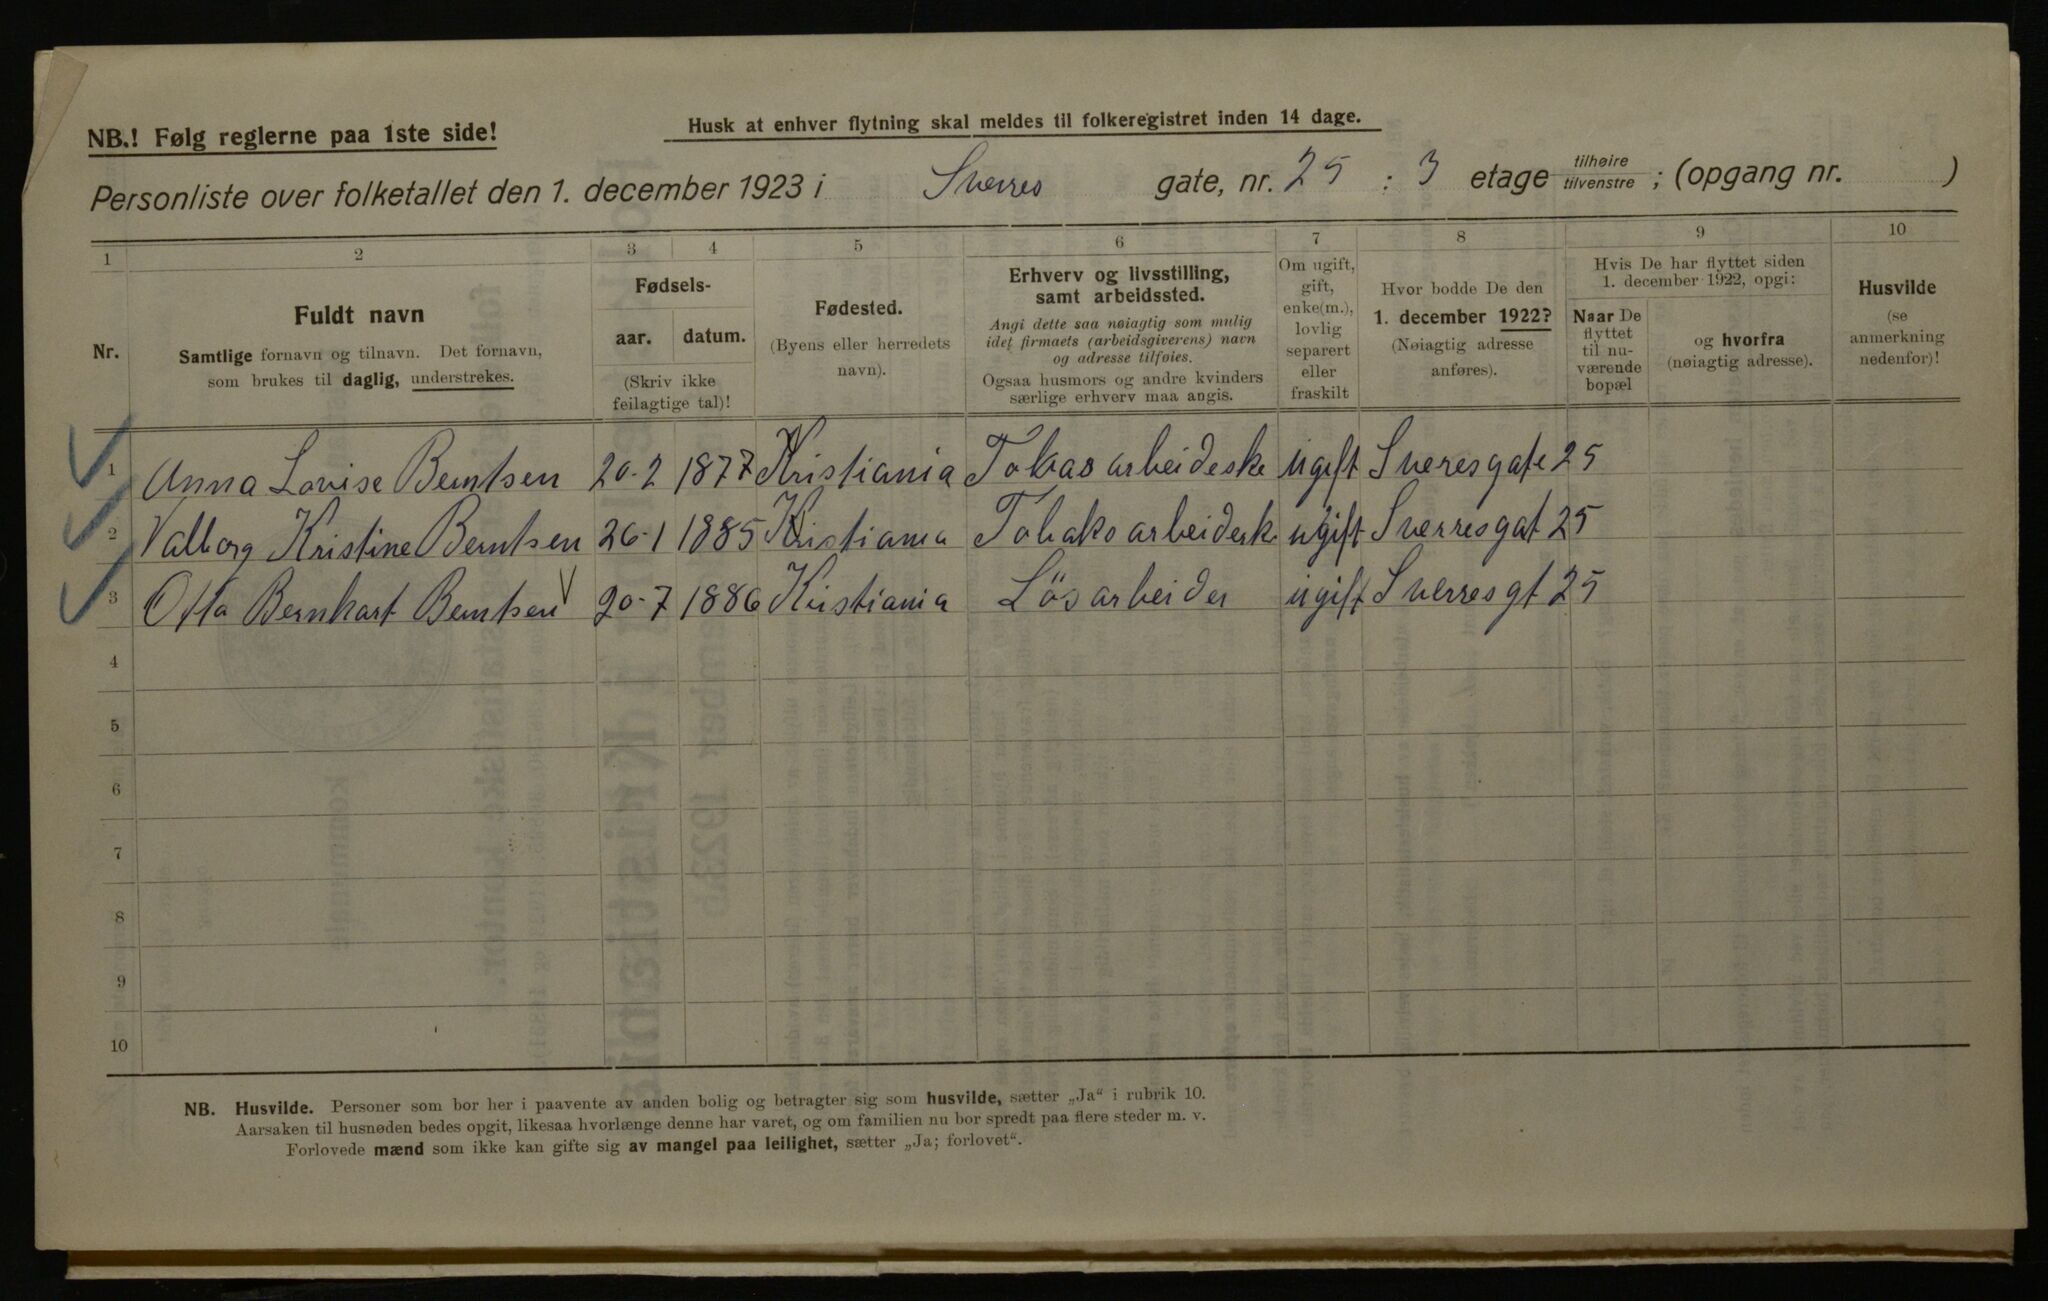 NB.! Følg reglerne paa 1ste side!
Husk at enhver flytning skal meldes til folkeregistret inden 14 dage.
Personliste over folketallet den 1. december 1923 i Sverres gate, nr. 25 : 3 etage tilhøire tilvenstre ; (opgang nr. )
1 2 3 4 5 6 7 8 9 10
Nr.
Fuldt navn
Samtlige fornavn og tilnavn. Det fornavn,
som brukes til daglig, understrekes.
Fødsels-
aar. datum.
(Skriv ikke
feilagtige tal)!
Fødested.
(Byens eller herredets
navn).
Erhverv og livsstilling,
samt arbeidssted.
Angi dette saa nøiagtig som mulig
idet firmaets (arbeidsgiverens) navn
og adresse tilføies.
Ogsaa husmors og andre kvinders
særlige erhverv maa angis.
Om ugift,
gift,
enke(m.),
lovlig
separert
eller
fraskilt
Hvor bodde De den
1. december 1922?
(Nøiagtig adresse
anføres).
Hvis De har flyttet siden
1. december 1922, opgi:
Naar De
flyttet
til nu-
værende
bopæl
og hvorfra
(nøiagtig adresse).
Husvilde
(se
anmerkning
nedenfor)!
1 Anna Lovise Berntsen 20-2 1877 Kristiania Tobaks arbeideske ugift Sveresgate 25
2 Valborg Kristine Berntsen 26-1 1885 Kristiania Tobaks arbeiderske ugift Sverresgat 25
3 Otto Bernhart Berntsen V 20-7 1886 Kristiania Lösarbeider ugift Sverresgt 25
4
5
6
7
8
9
10
NB. Husvilde. Personer som bor her i paavente av anden bolig og betragter sig som husvilde, sætter „Ja“ i rubrik 10.
Aarsaken til husnøden bedes opgit, likesaa hvorlænge denne har varet, og om familien nu bor spredt paa flere steder m. v.
Forlovede mænd som ikke kan gifte sig av mangel paa leilighet, sætter „Ja; forlovet“.